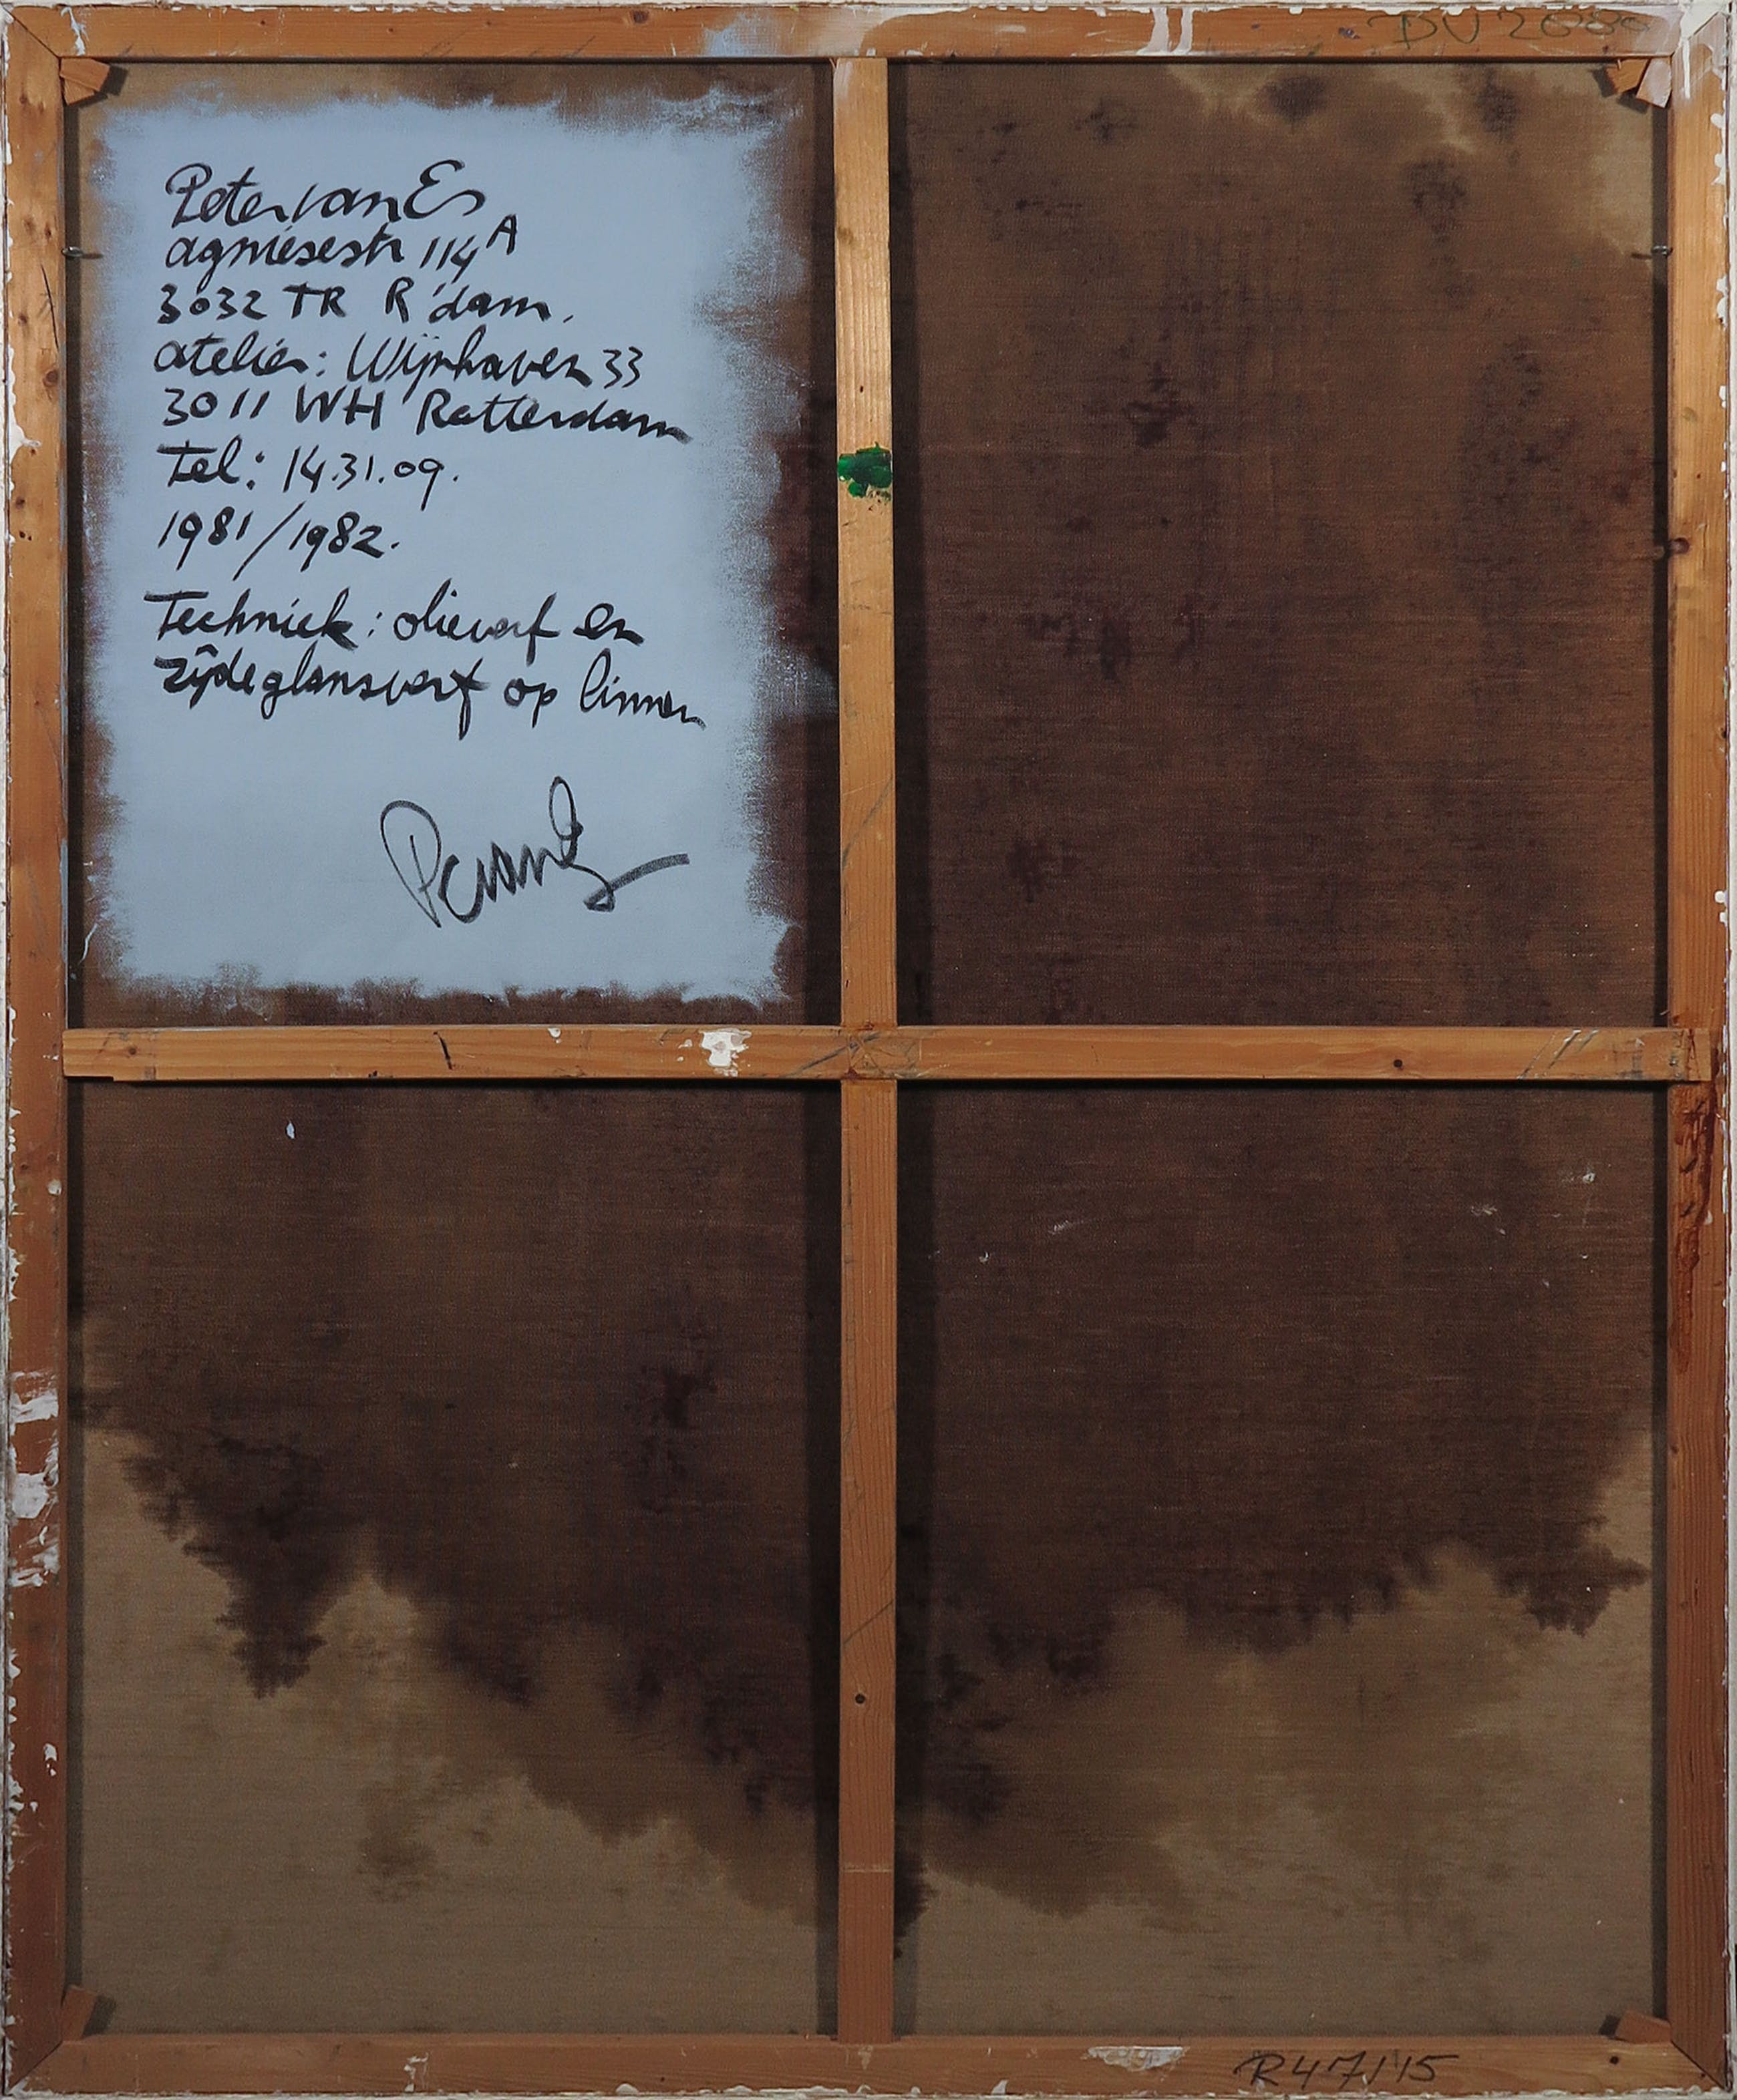 DV 2080
Peter van Es
agniesestr 114 A
3032 TR R'dam.
atelier: Wijnhaven 33
3011 WH Rotterdam
Tel: 14.31.09.
1981/1982.
Techniek: olieverf en
zijdeglansverf op linnen
PCvanEs
R47/15